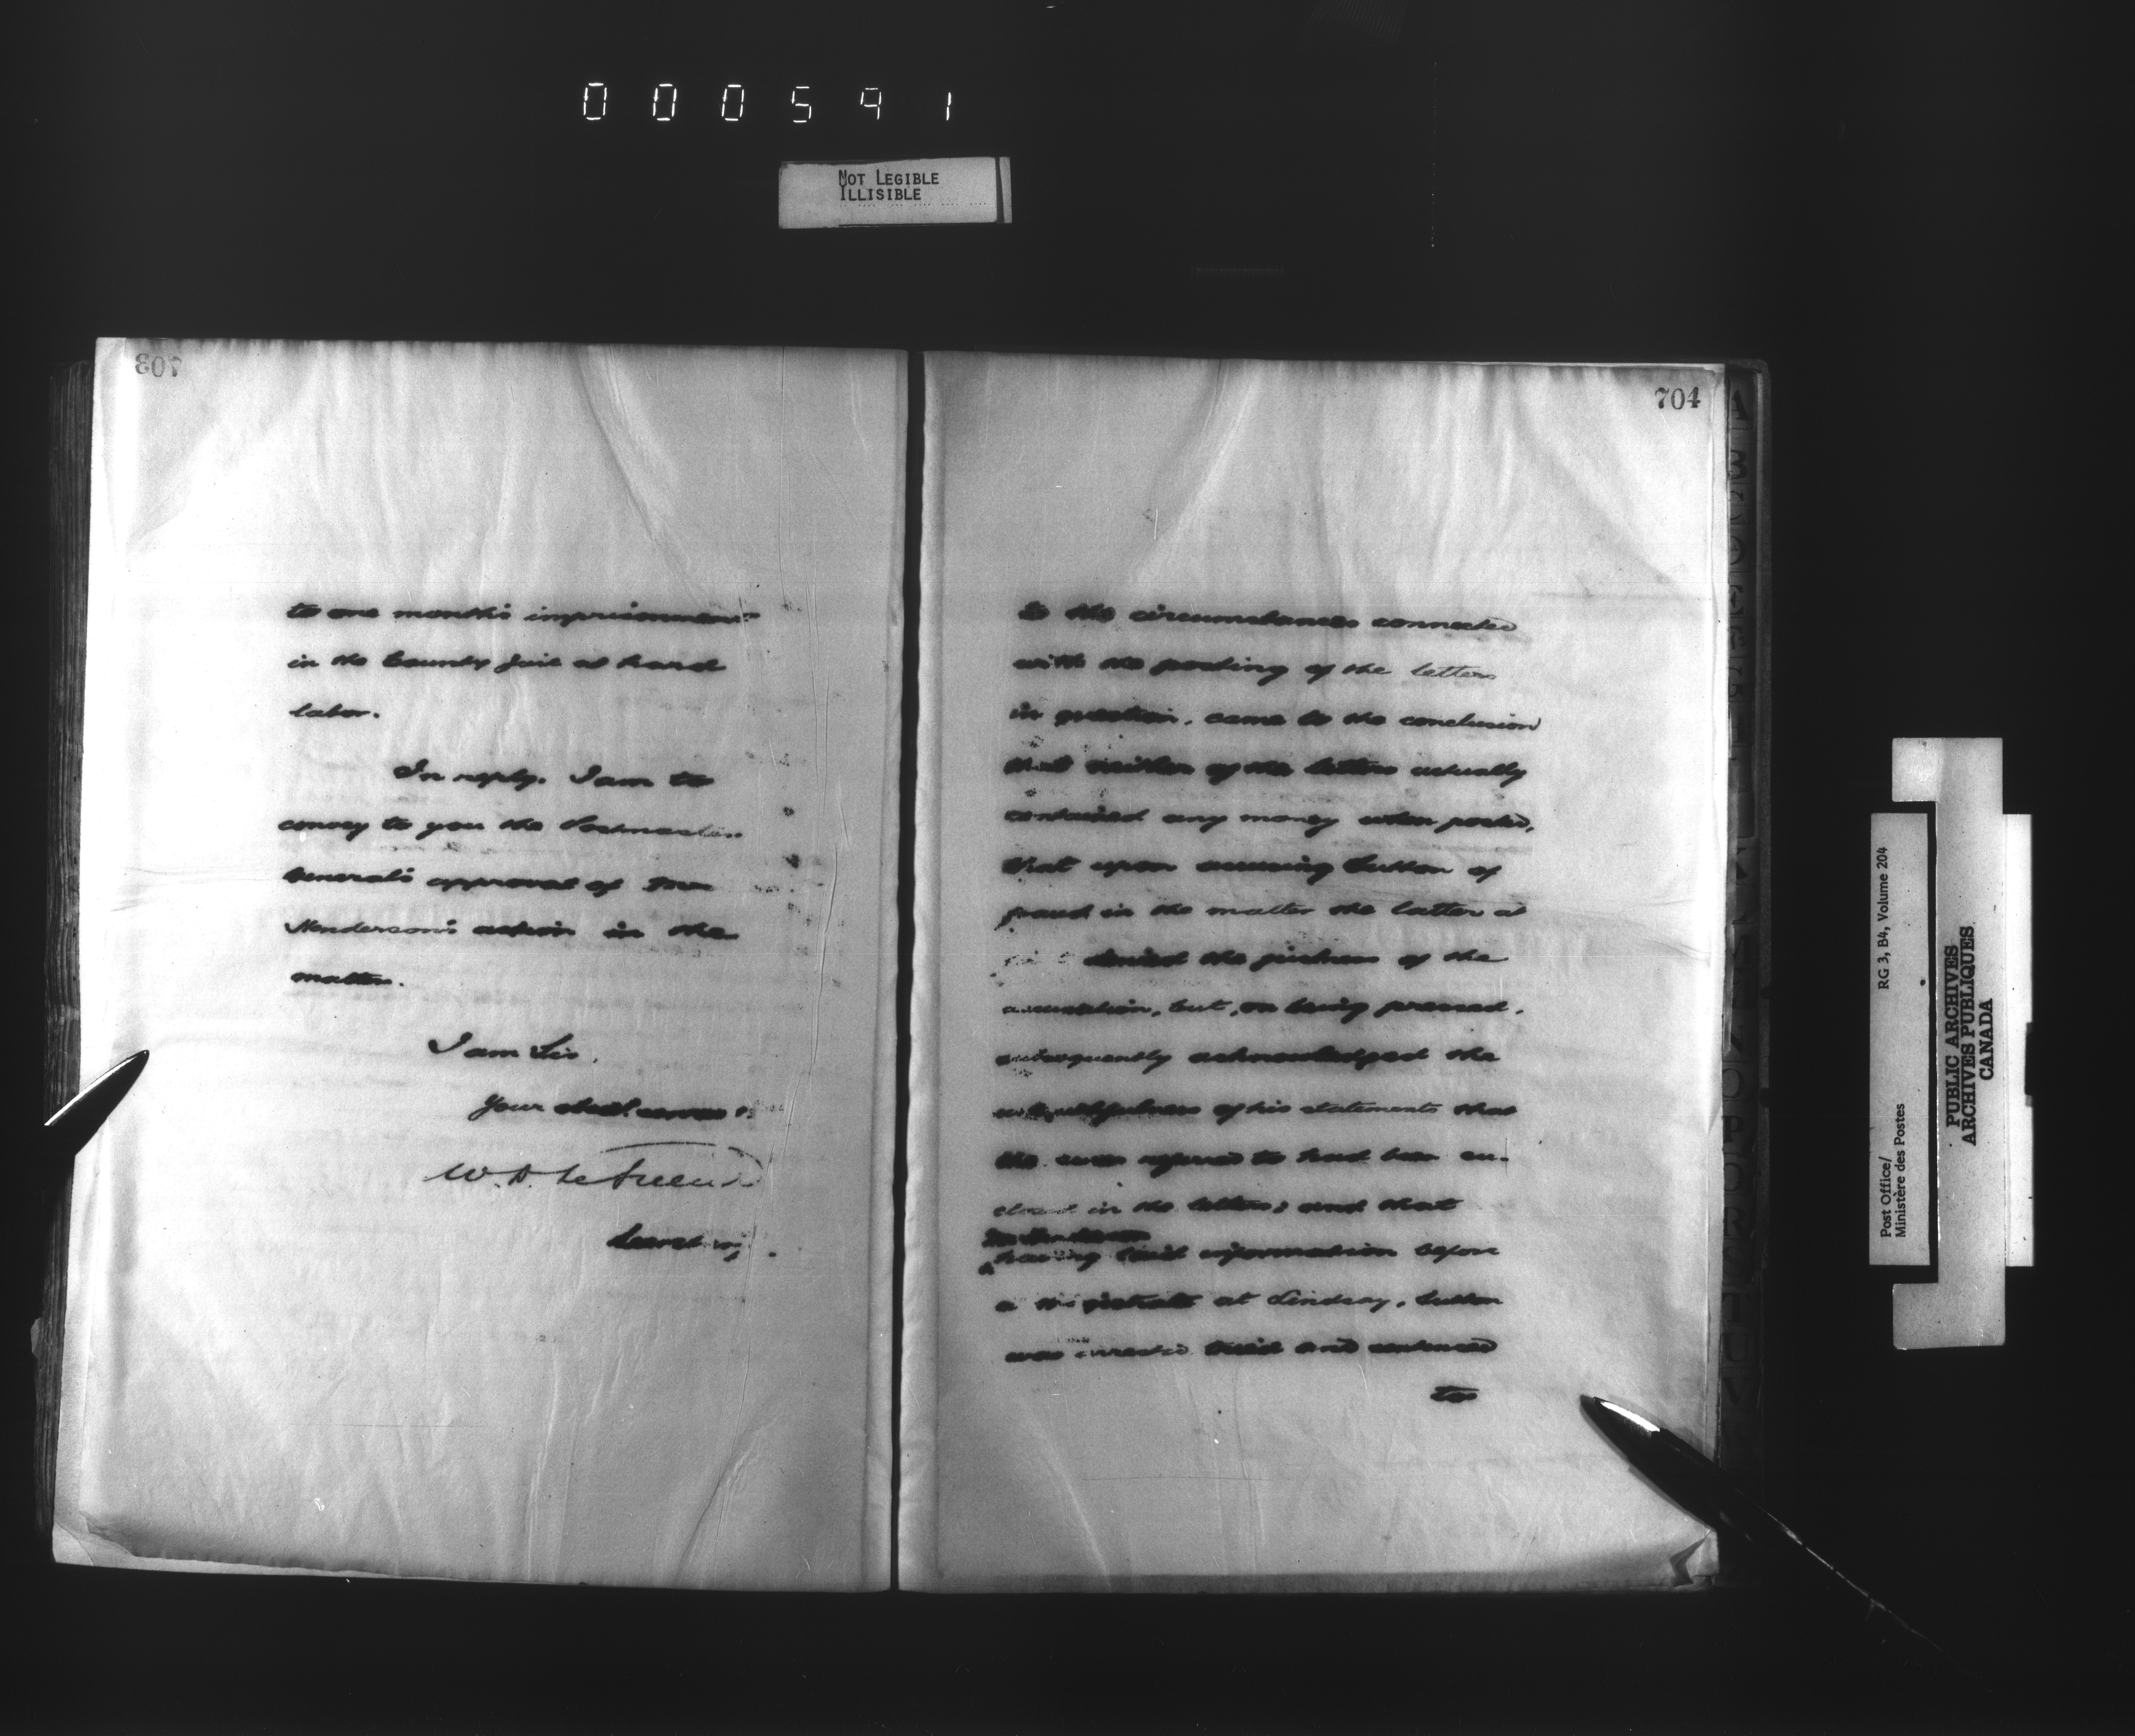 000591
NOT LEGIBLE
ILLISIBLE
703
to one month's imprisonment
in the County Jail at hard
labor.
In reply, I am to
convey to you the Postmaster
General's approval of Mr
Henderson's action in the
matter.
I am Sir,
Your obedt servant
W. D. LeSueur
Secretary.
704
to the circumstances connected
with the posting of the letters
in question, came to the conclusion
that neither of the letters actually
contained any money when posted,
that upon accusing Sutton of
fraud in the matter the latter at
first denied the justness of the
accusation, but, on being pressed,
subsequently acknowledged the
untruthfulness of his statements that
the sums referred to had been en-
closed in the letters; and that
Mr Henderson
having laid information before
a magistrate at Lindsay, Sutton
was arrested tried and sentenced
to
Post Office/
Ministère des Postes
RG 3, B4, Volume 204
PUBLIC ARCHIVES
ARCHIVES PUBLIQUES
CANADA